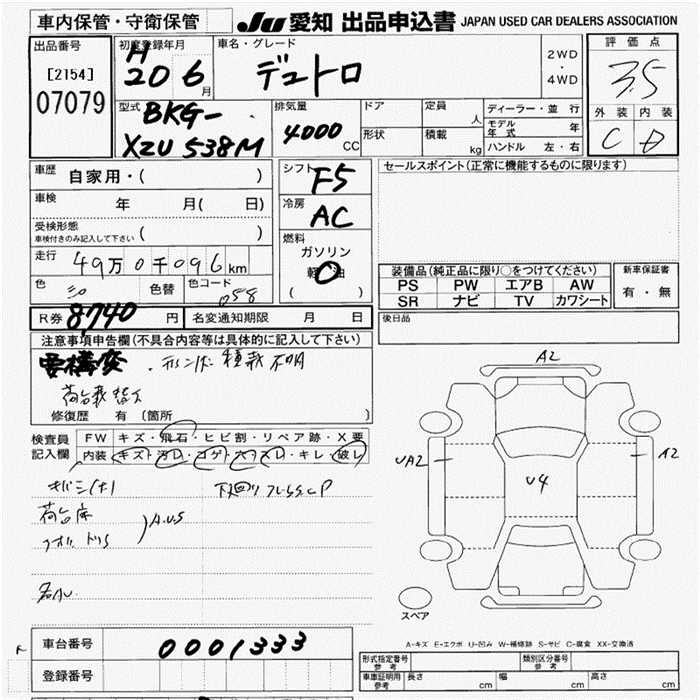 車内保管・守衛保管
JU 愛知 出品申込書 JAPAN USED CAR DEALERS ASSOCIATION
出品番号
[2154]
07079
初度登録年月
H
20 6 月
車名・グレード
デュトロ
2WD
・
4WD
評価点
3.5
外装 内装
C D
型式
BKG-
XZU 538M
排気量
4000 CC
ドア
形状
定員 人
積載 kg
ディーラー・並行
モデル年式 年
ハンドル 左・右
車歴
自家用・( )
車検
年 月( 日)
受検形態
車検付きのみ記入して下さい ( )
走行
49万0千096 km
色
色替
色コード
058
シフト
F5
冷房
AC
燃料
ガソリン
軽油
( )
セールスポイント(正常に機能するものに限ります)
装備品(純正品に限り○をつけてください)
PS PW エアB AW
SR ナビ TV カワシート
新車保証書
有・無
R券 8,740 円
名変通知期限 月 日
後日品
注意事項申告欄(不具合内容等は具体的に記入して下さい)
要構変
不明
修復歴 有 (箇所 )
検査員
記入欄
FW キズ・飛石・ヒビ割・リペア跡・X要
内装 キズ・汚レ・コゲ・穴・スレ・キレ・破レ
A.U.S
A2
UA2
U4
A2
スペア
A-キズ E-エクボ U-凹み W-補修跡 S-サビ C-腐食 XX-交換済
車台番号
0001333
登録番号
形式指定番号
参考
類別区分番号
参考
車庫証明用
参考
長さ cm
幅 cm
高さ cm